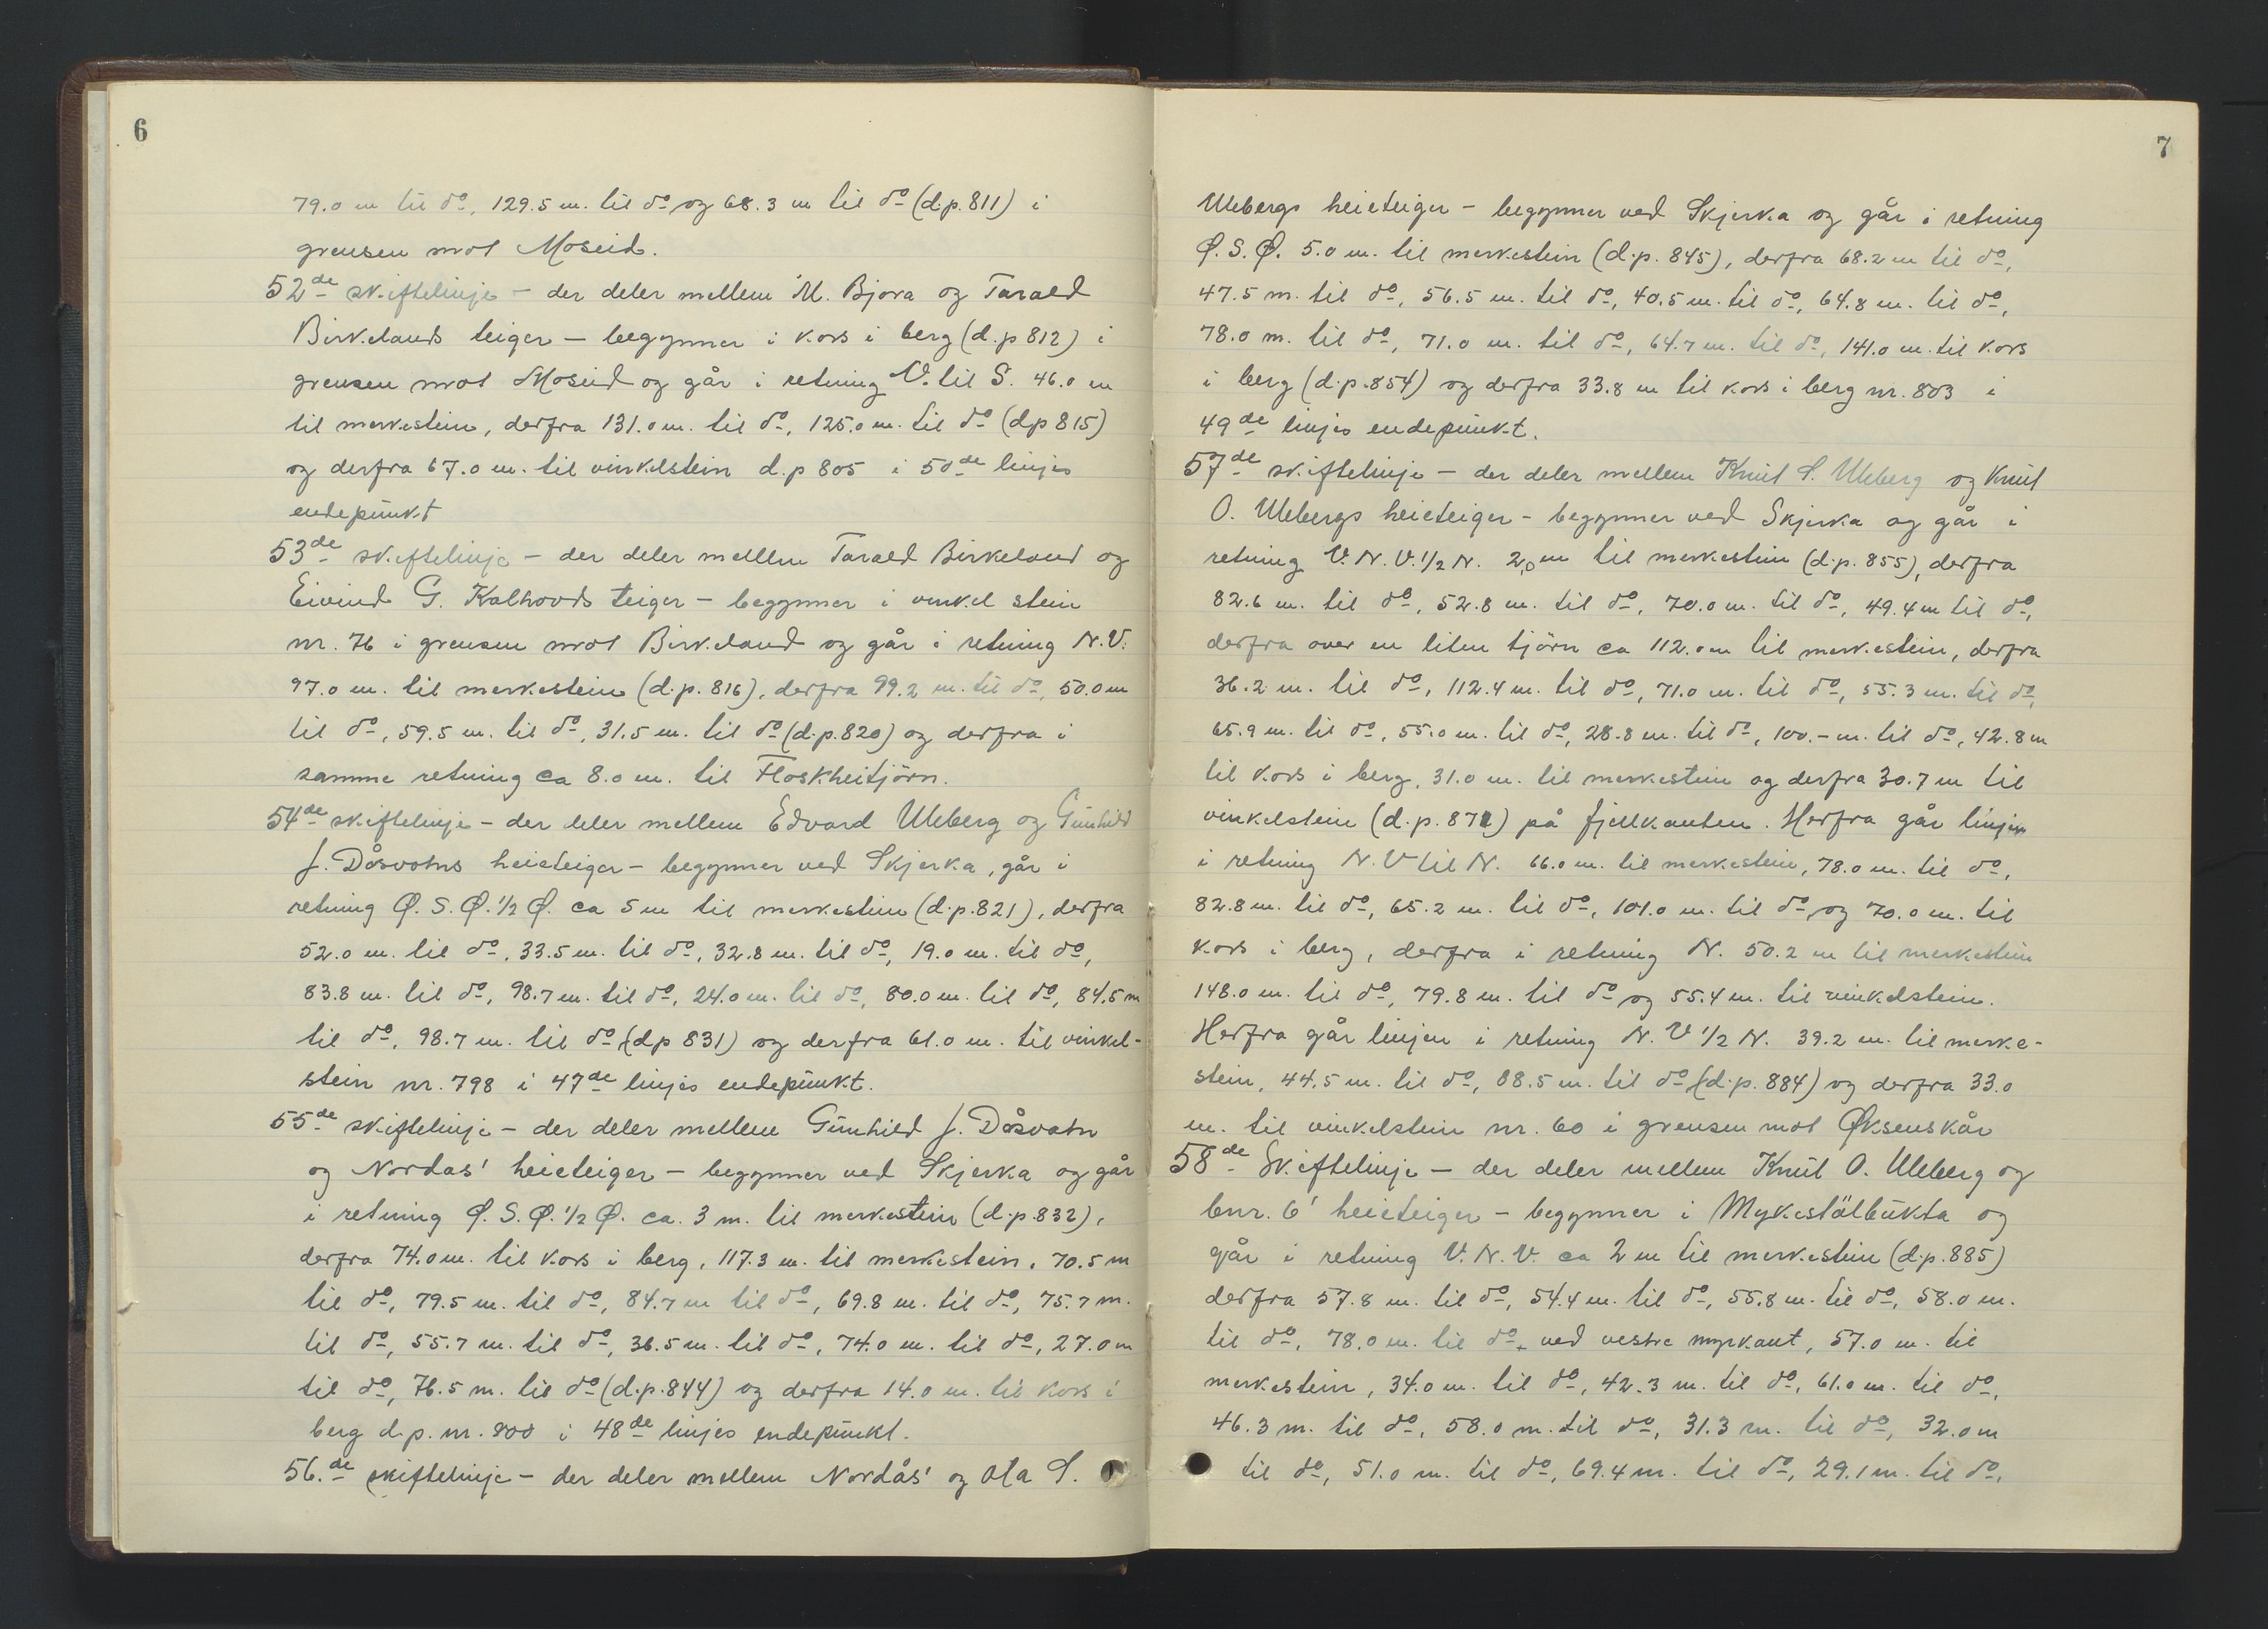 6
79.0 m til do, 129.5 m. til do og 68.3 m til do (d.p. 811) i
grensen mot Moseid.
52de skiftelinje – der deler mellem M. Bjora og Tarald
Birkelands teiger – begynner i kors i berg (d.p 812) i
grensen mot Moseid og går i retning V. til S. 46.0 m
til merkestein, derfra 131.0 m. til do, 125.0 m. til do (dp 815)
og derfra 67.0 m. til vinkelstein d.p 805 i 50de linjes
endepunkt
53de skiftelinje – der deler mellem Tarald Birkeland og
Eivind G. Kalhovds teiger – begynner i vinkel stein
nr. 76 i grensen mot Birkeland og går i retning N.V.
97.0 m. til merkestein (d.p. 816), derfra 99.2 m. til do, 50.0 m
til do, 59.5 m. til do, 31.5 m. til do (d.p. 820) og derfra i
samme retning ca 8.0 m. til Floskheitjörn.
54de skiftelinje – der deler mellem Edvard Uleberg og Gunhild
J. Dåsvatns heieteiger – begynner ved Skjerka, går i
retning Ø. S. Ø. 1/2 Ø. ca 5 m til merkestein (d.p. 821), derfra
52.0 m. til do, 33.5 m. til do, 32.8 m. til do, 19.0 m. til do,
83.8 m. til do, 98.7 m. til do, 24.0 m. til do, 80.0 m. til do, 84.5 m
til do, 98.7 m. til do (dp 831) og derfra 61.0 m. til vinkel-
stein nr. 798 i 47de linjes endepunkt.
55de skiftelinje – der deler mellem Gunhild J. Dåsvatn
og Nordas' heieteiger – begynner ved Skjerka og går
i retning Ø. S. Ø. 1/2 Ø. ca. 3 m. til merkestein (d.p. 832),
derfra 74.0 m. til kors i berg, 117.3 m. til merkestein, 70.5 m
til do, 79.5 m. til do, 84.7 m til do, 69.8 m. til do, 75.7 m.
til do, 55.7 m. til do, 36.5 m. til do, 74.0 m. til do, 27.0 m
til do, 76.5 m. til do (d.p. 844) og derfra 14.0 m. til kors i
berg d.p. nr. 800 i 48de linjes endepunkt.
56.de skiftelinje – der deler mellem Nordås' og Ola S.
7
Ulebergs heieteiger – begynner ved Skjerka og går i retning
Ø. S. Ø. 5.0 m. til merkestein (d.p. 845), derfra 68.2 m til do,
47.5 m. til do, 56.5 m. til do, 40.5 m. til do, 64.8 m. til do,
78.0 m. til do, 71.0 m. til do, 64.7 m. til do, 141.0 m. til kors
i berg (d.p. 854) og derfra 33.8 m til kors i berg nr. 803 i
49de linjes endepunkt.
57de skiftelinje – der deler mellem Knut S. Uleberg og Knut
O. Ulebergs heieteiger – begynner ved Skjerka og går i
retning V. N. V. 1/2 N. 2,0 m til merkestein (d.p. 855), derfra
82.6 m. til do, 52.8 m. til do, 70.0 m. til do, 49.4 m til do,
derfra over en liten tjörn ca 112.0 m til merkestein, derfra
36.2 m. til do, 112.4 m. til do, 71.0 m. til do, 55.3 m. til do,
65.9 m. til do, 55.0 m. til do, 28.8 m. til do, 100.– m. til do, 42.8 m
til kors i berg, 31.0 m. til merkestein og derfra 30.7 m til
vinkelstein (d.p. 871) på fjellkanten. Herfra går linjen
i retning N. V til N. 66.0 m. til merkestein, 78.0 m. til do,
82.8 m. til do, 65.2 m. til do, 101.0 m. til do og 70.0 m. til
kors i berg, derfra i retning N. 50.2 m til merkestein
148.0 m. til do, 79.8 m. til do og 55.4 m. til vinkelstein.
Herfra går linjen i retning N. V 1/2 N. 39.2 m. til merke-
stein, 44.5 m. til do, 88.5 m. til do (d.p. 884) og derfra 33.0
m. til vinkelstein nr. 60 i grensen mot Øksenskår
58de Skiftelinje – der deler mellem Knut O. Uleberg og
bnr. 6' heieteiger – begynner i Mykestölbukta og
går i retning V. N. V. ca 2 m til merkestein (d.p. 885)
derfra 57.8 m. til do, 54.4 m. til do, 55.8 m. til do, 58.0 m.
til do, 78.0 m. til do, ved vestre myrkant, 57.0 m. til
merkestein, 34.0 m. til do, 42.3 m. til do, 61.0 m. til do,
46.3 m. til do, 58.0 m. til do, 31.3 m. til do, 32.0 m
til do, 51.0 m. til do, 69.4 m. til do, 29.1 m. til do,